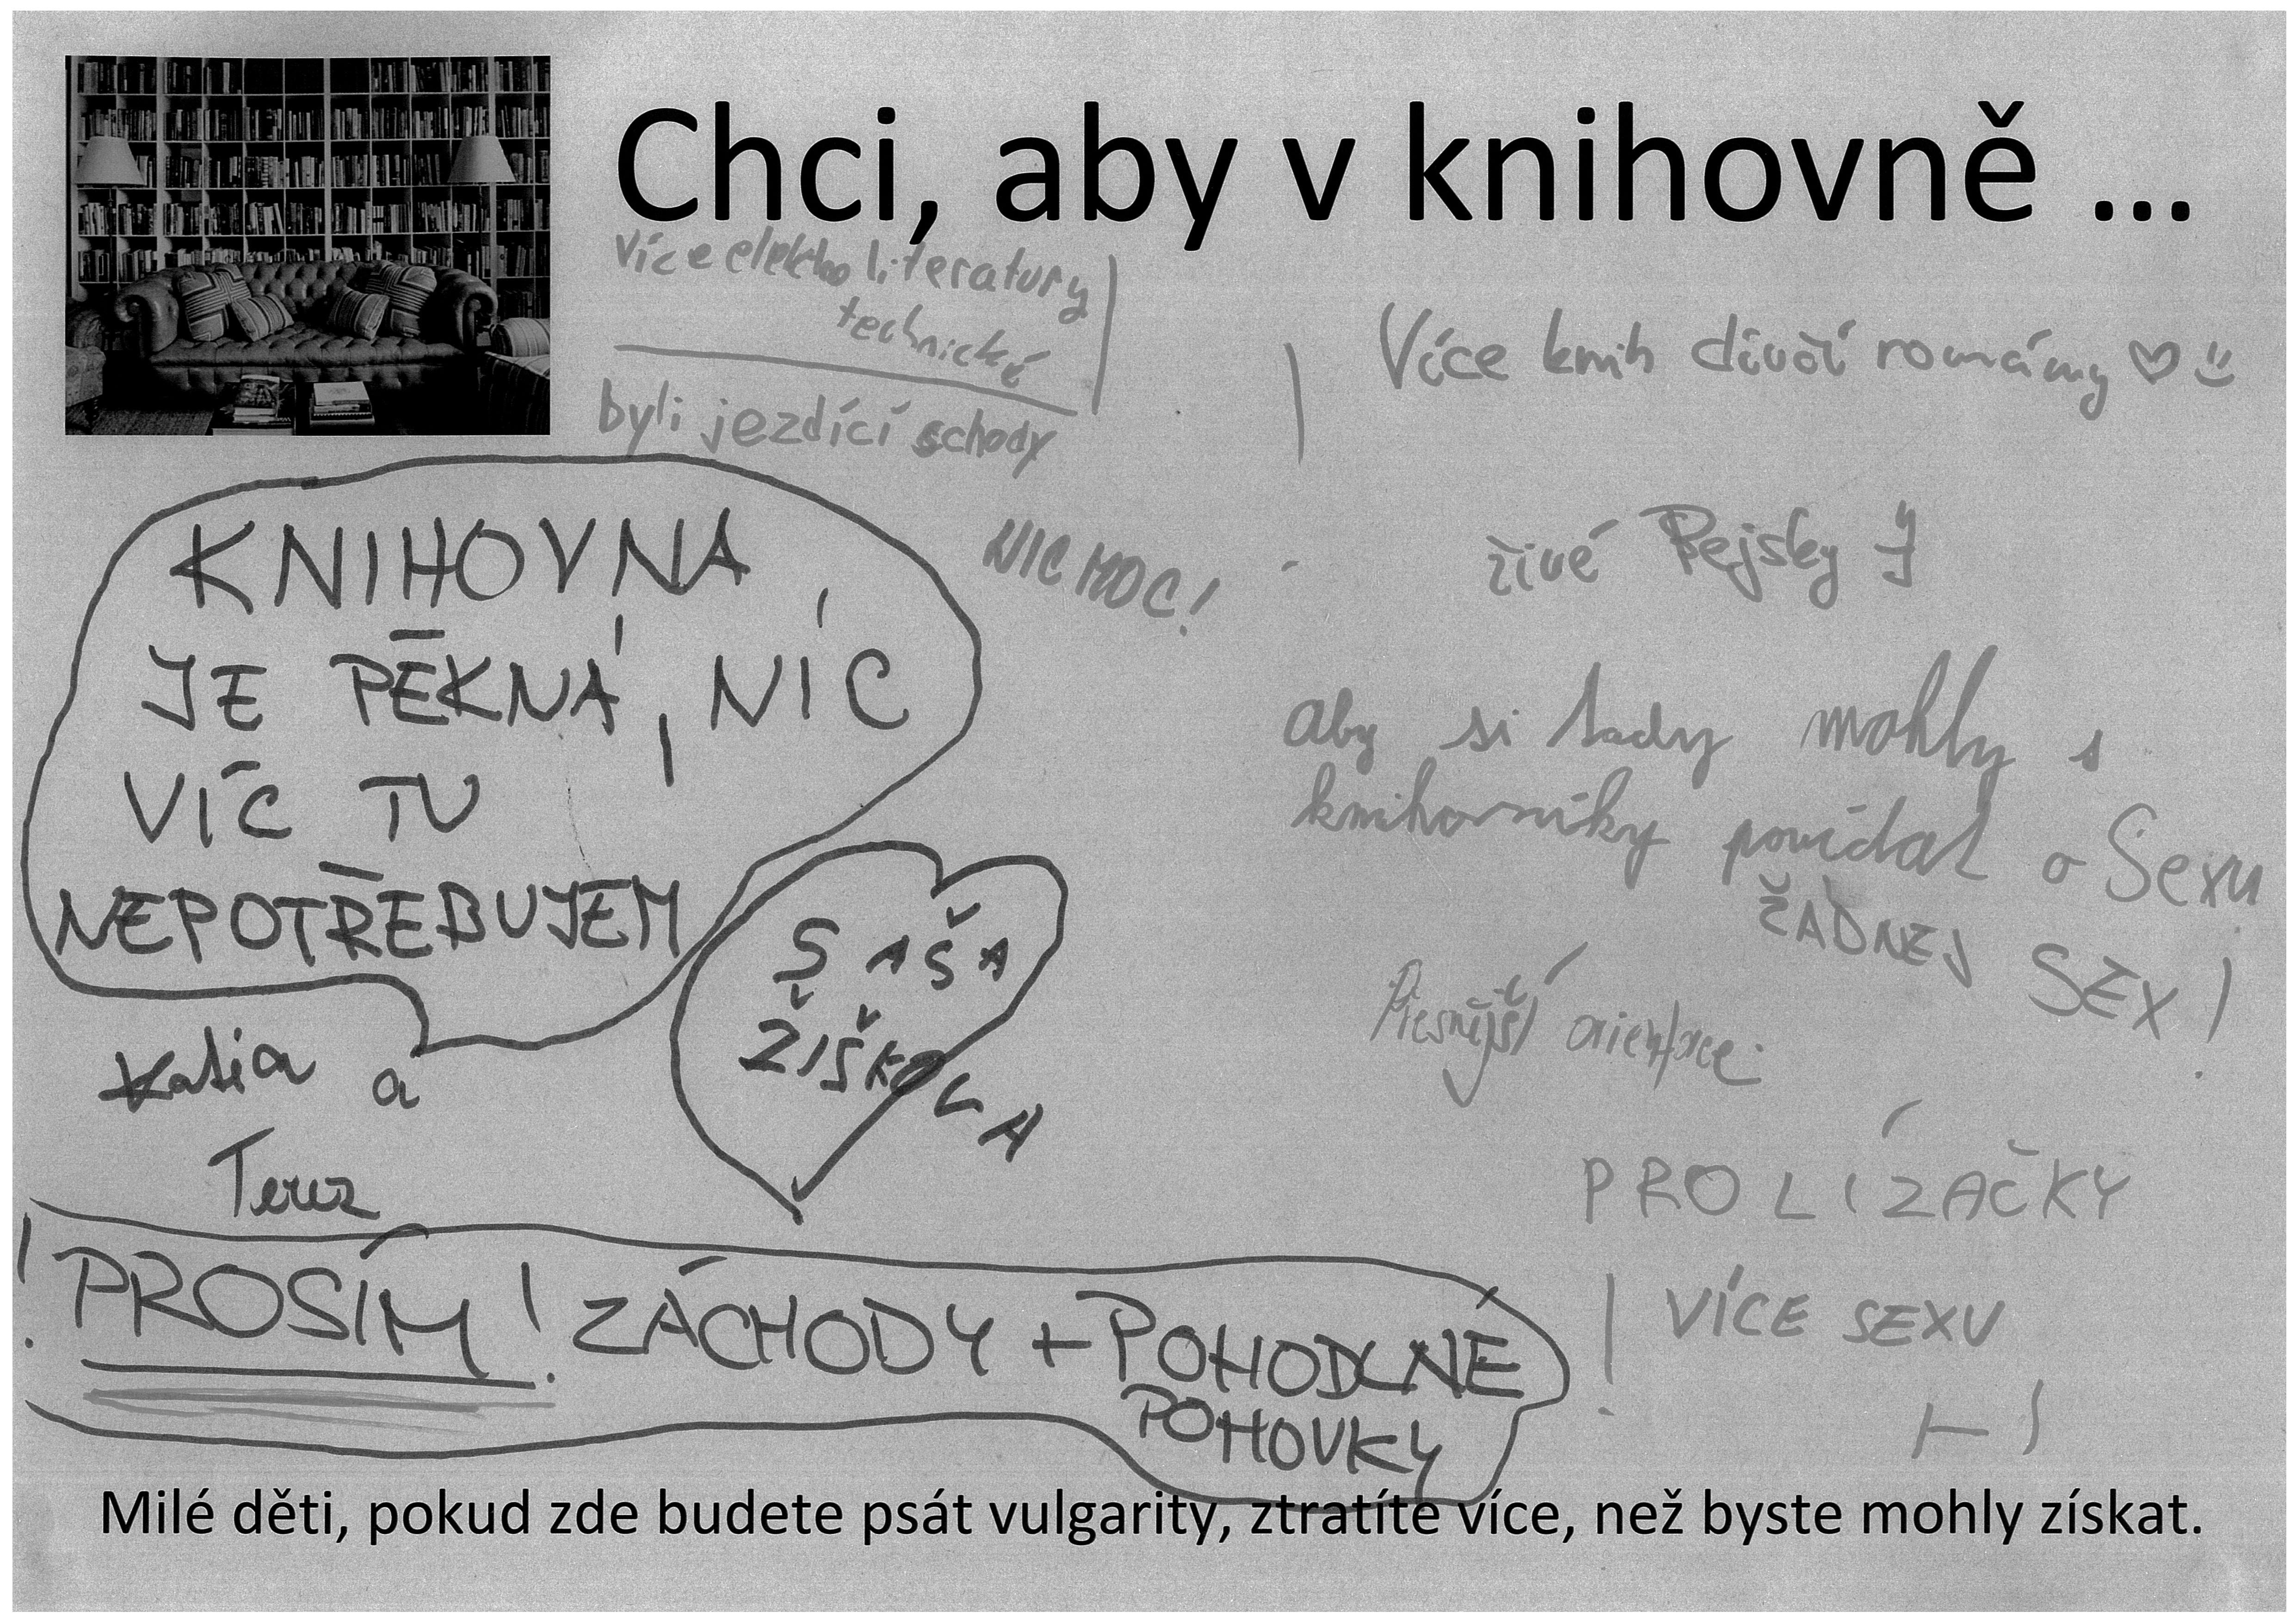 Chci, aby v knihovně ...
více elektro literatury
technické
byli jezdící schody
Více knih dívčí romány
NIC MOC!
živé Pejsky
KNIHOVNA
JE PĚKNÁ, NÍC
VÍC TU
NEPOTŘEBUJEM
aby si tady mohly s
knihovníky povídat o Sexu
ŽÁDNEJ SEX!
SAŠA
ŽIŠKOVA
Přesnější orientace
Katia a
Terez
PROLÍZAČKY
! PROSÍM! ZÁCHODY + POHODLNÉ
POHOVKY
! VÍCE SEXU
Milé děti, pokud zde budete psát vulgarity, ztratíte více, než byste mohly získat.